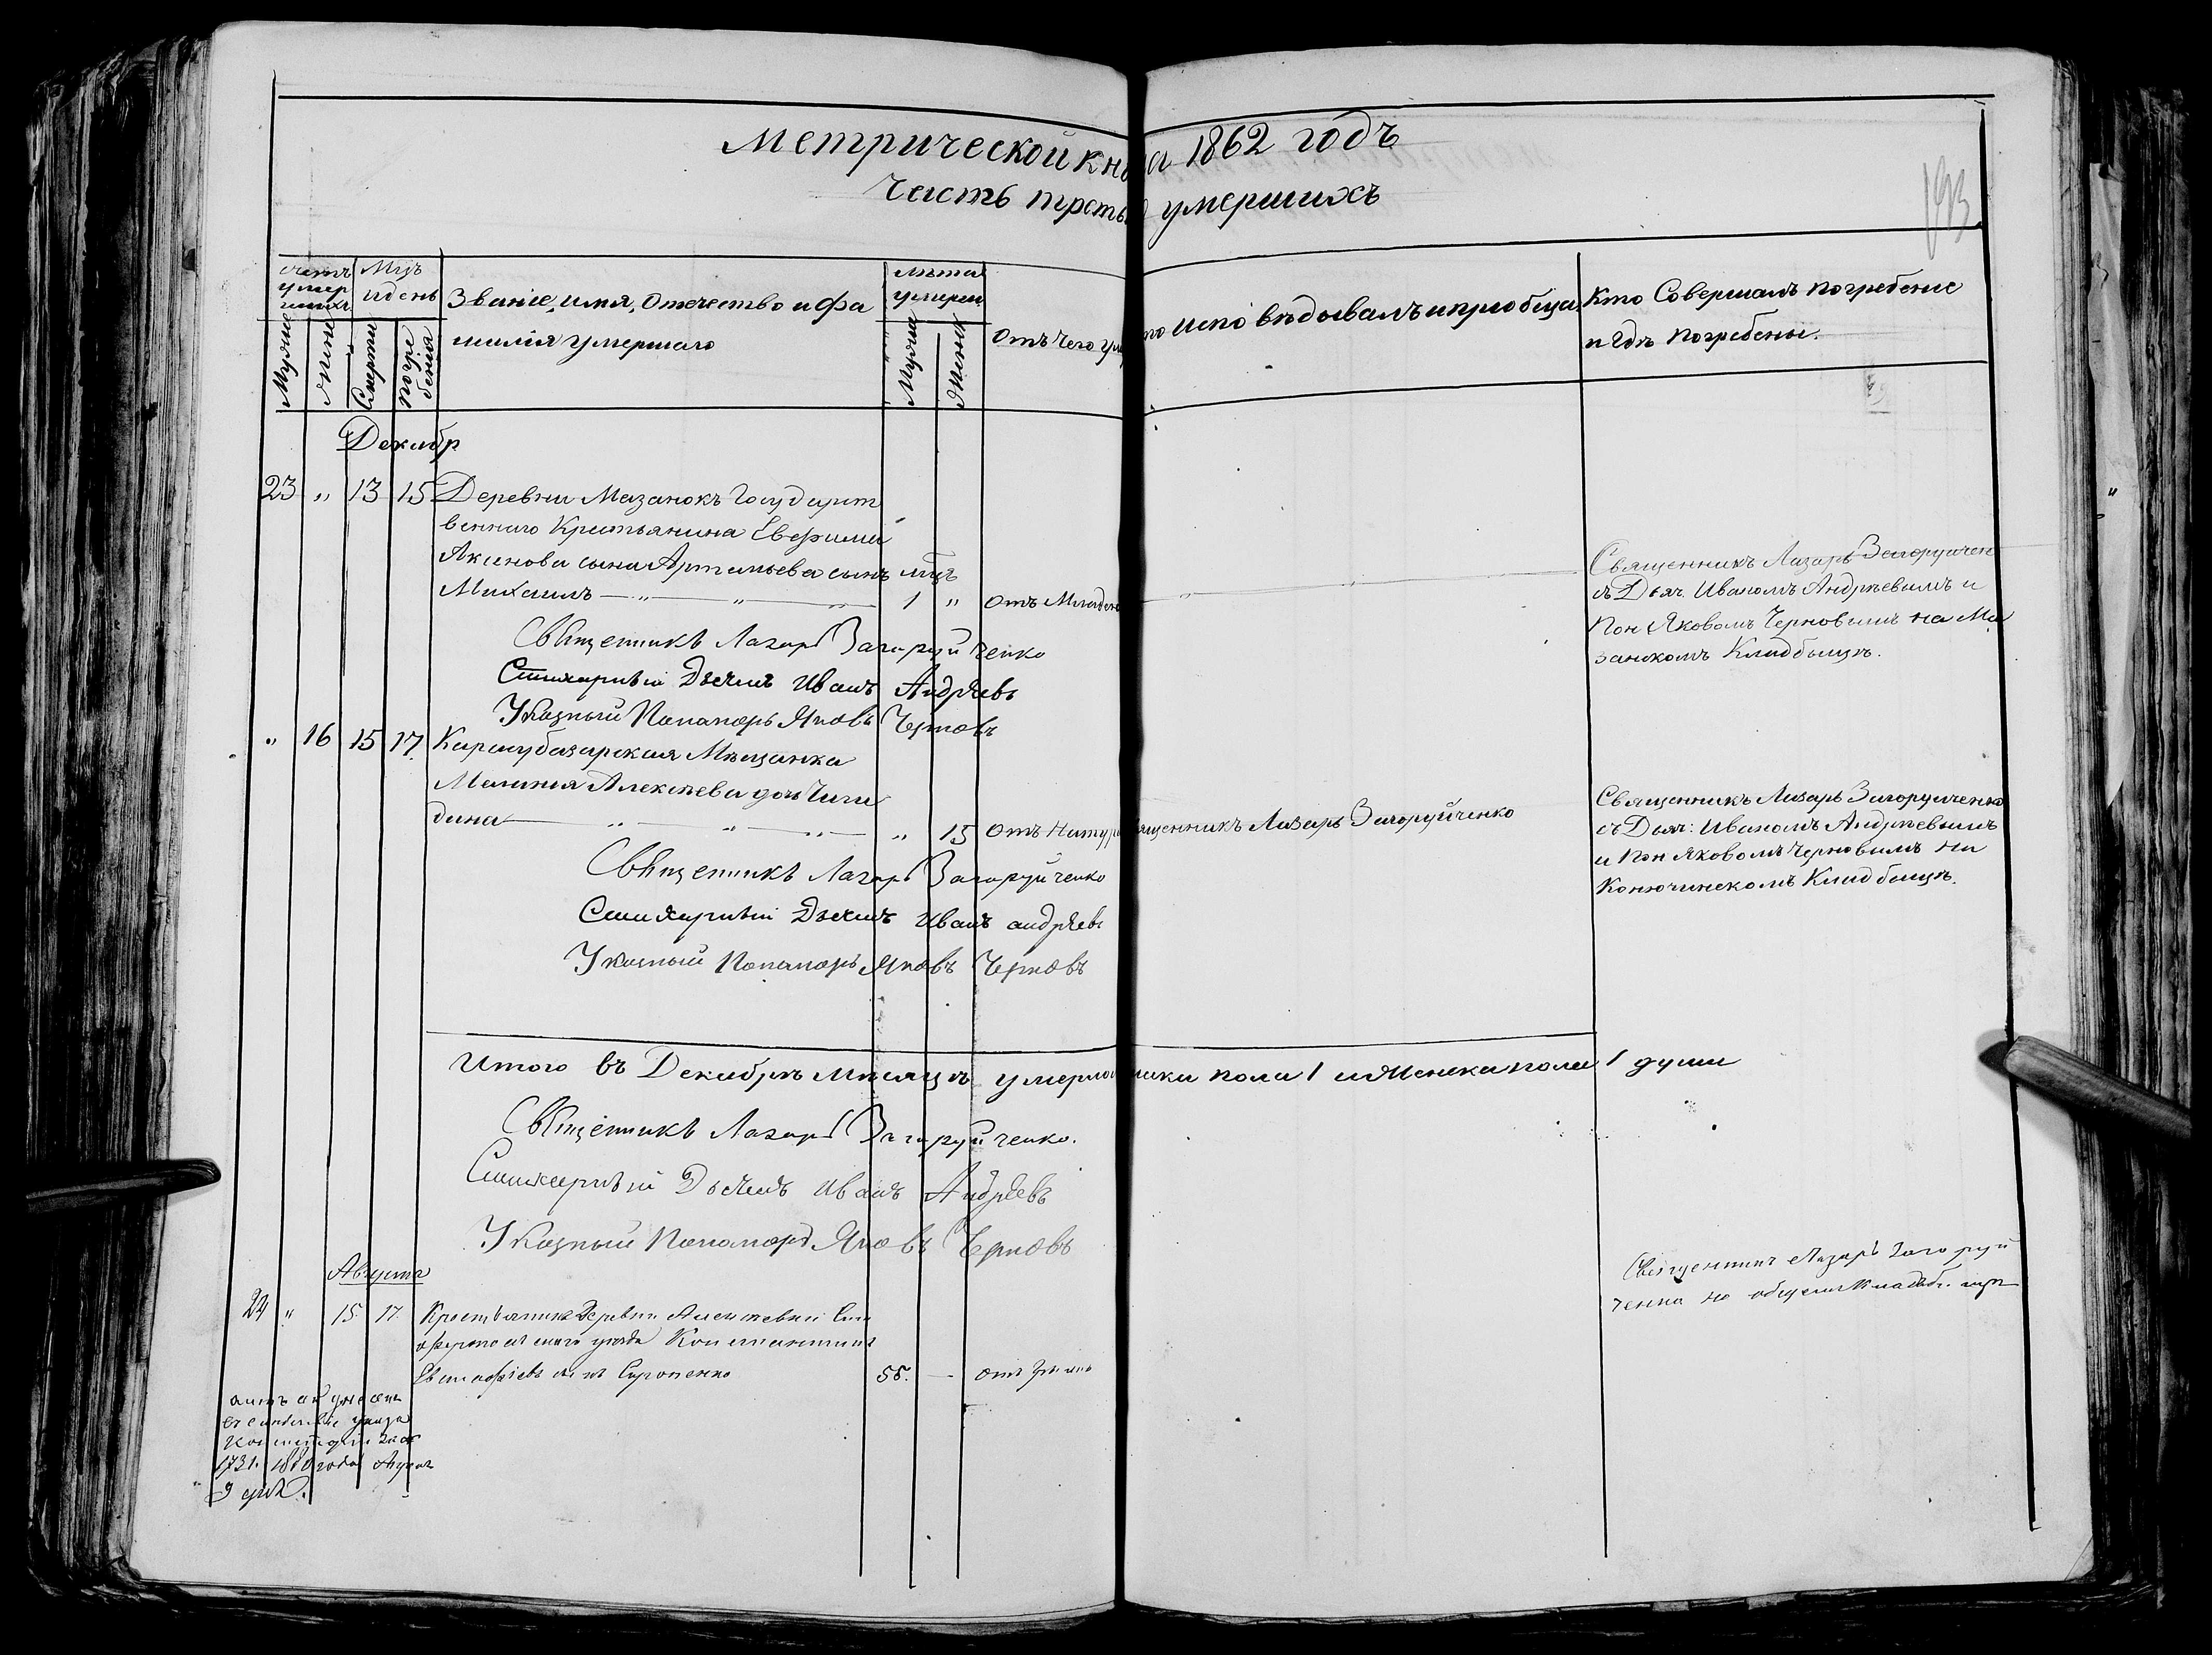 Метрической кни га 1862 годъ
Часть третья умершихъ
193
счетъ умер шихъ
Мцъ и день
Званіе, имя, отечество и фа
милія умершаго
Лѣта умерш
Отъ чего ум
то исповѣдывалъ и приобща
Кто Совершалъ погребеніе
и гдѣ погребены.
Мужъ
Жен
Смерти
Погре бенія
Мужъ
Жен
Декабр
23 " 13 15 Деревни Мазанокъ Государст
веннаго Крестьянина Евфимія
Аксенова сына Артемьева сынъ мцъ
Михаилъ — " — " — " — 1 " Отъ Младен
Священникъ Лазарь Загоруйчен
съ Дьяч. Иваномъ Андрѣевымъ и
Пон Яковомъ Черновымъ на Ма
занкомъ Кладбыщѣ.
Священникъ Лазарь Загоруйченко
Стихарный Дьячикъ Иванъ Андрѣевъ
Указный Понамарь Яковъ Черновъ
" 16 15 17. Карасубазарская Мѣщанка
Меланія Алексѣева дочь Чиги
дина — " — " — " — " 15 Отъ Натур
щенникъ Лазарь Загоруйченко
Священникъ Лазарь Загоруйченко
съ Дьяч: Иваномъ Андрѣевымъ
и Пон Яковомъ Черновымъ на
Конючинскомъ Кладбыщѣ.
Священникъ Лазарь Загоруйченко
Стихарный Дьячикъ Иванъ андрѣевъ
Указный Понамарь Яковъ Черновъ
Итого въ Декабрѣ мѣсяцѣ умерло
жска пола 1 и Женска пола 1 души
Священникъ Лазарь Загоруйченко.
Стихарный Дьячикъ Иванъ Андрѣевъ
Указный Понамарь Яковъ Черновъ
Августа
24 " 15 17. Крестьянинъ Деревни
уѣзда Константинъ
сынъ 55. — отъ
Священникъ Лазарь Загоруй
ченко на общемъ Кладб.
1731. 1880 года
9 дня.